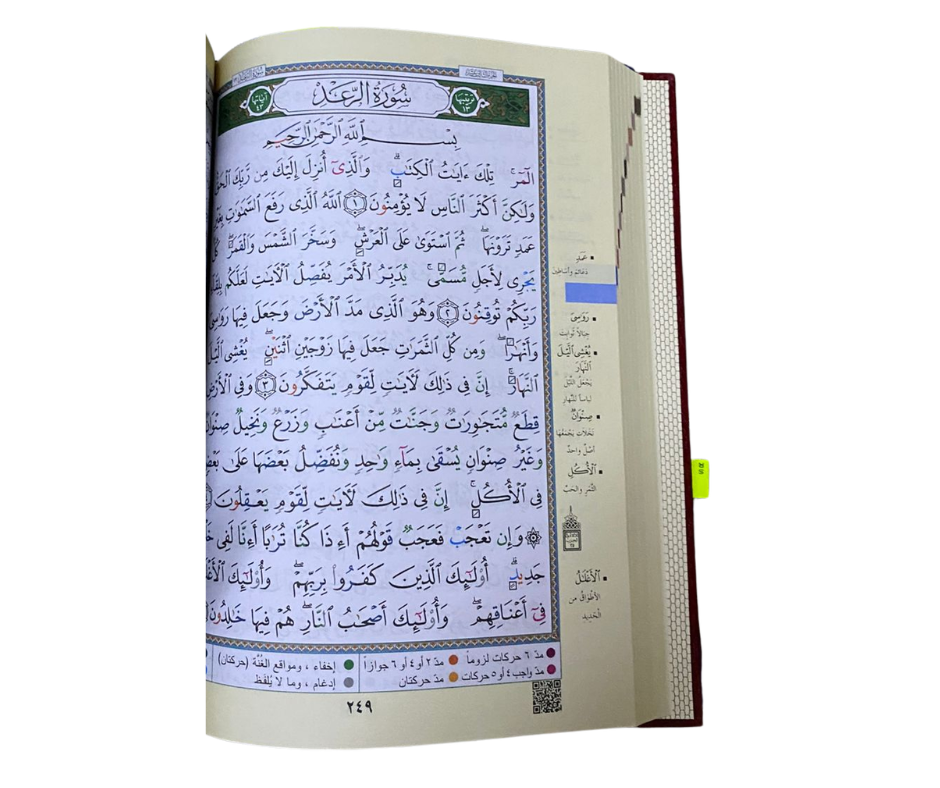 سُورَةُ الرَّعْدِ
ترتيبها ١٣
آياتها ٤٣
بِسْمِ اللَّهِ الرَّحْمَٰنِ الرَّحِيمِ
الٓمٓر ۚ تِلْكَ ءَايَٰتُ الْكِتَٰبِ ۗ وَالَّذِىٓ أُنزِلَ إِلَيْكَ مِن رَّبِّكَ الْحَقُّ
وَلَٰكِنَّ أَكْثَرَ النَّاسِ لَا يُؤْمِنُونَ ۝١ اللَّهُ الَّذِى رَفَعَ السَّمَٰوَٰتِ بِغَيْرِ
عَمَدٍ تَرَوْنَهَا ۖ ثُمَّ اسْتَوَىٰ عَلَى الْعَرْشِ ۖ وَسَخَّرَ الشَّمْسَ وَالْقَمَرَ ۖ كُلٌّ
يَجْرِى لِأَجَلٍ مُّسَمًّى ۚ يُدَبِّرُ الْأَمْرَ يُفَصِّلُ الْءَايَٰتِ لَعَلَّكُم بِلِقَآءِ
رَبِّكُمْ تُوقِنُونَ ۝٢ وَهُوَ الَّذِى مَدَّ الْأَرْضَ وَجَعَلَ فِيهَا رَوَٰسِىَ
وَأَنْهَٰرًا ۖ وَمِن كُلِّ الثَّمَرَٰتِ جَعَلَ فِيهَا زَوْجَيْنِ اثْنَيْنِ ۖ يُغْشِى الَّيْلَ
النَّهَارَ ۚ إِنَّ فِى ذَٰلِكَ لَءَايَٰتٍ لِّقَوْمٍ يَتَفَكَّرُونَ ۝٣ وَفِى الْأَرْضِ
قِطَعٌ مُّتَجَٰوِرَٰتٌ وَجَنَّٰتٌ مِّنْ أَعْنَٰبٍ وَزَرْعٌ وَنَخِيلٌ صِنْوَانٌ
وَغَيْرُ صِنْوَانٍ يُسْقَىٰ بِمَآءٍ وَٰحِدٍ وَنُفَضِّلُ بَعْضَهَا عَلَىٰ بَعْضٍ
فِى الْأُكُلِ ۚ إِنَّ فِى ذَٰلِكَ لَءَايَٰتٍ لِّقَوْمٍ يَعْقِلُونَ
۞ وَإِن تَعْجَبْ فَعَجَبٌ قَوْلُهُمْ أَءِذَا كُنَّا تُرَٰبًا أَءِنَّا لَفِى
جَدِيدٍ ۗ أُو۟لَٰٓئِكَ الَّذِينَ كَفَرُوا۟ بِرَبِّهِمْ ۖ وَأُو۟لَٰٓئِكَ
فِىٓ أَعْنَاقِهِمْ ۖ وَأُو۟لَٰٓئِكَ أَصْحَٰبُ النَّارِ ۖ هُمْ فِيهَا خَٰلِدُونَ
عَمَدٍ
دعائم وأساطين
رَوَٰسِىَ
جبالاً ثوابت
يُغْشِى الَّيْلَ
النَّهَارَ
يجعل الليل
لباساً للنهار
صِنْوَانٌ
نخلات يجمعها
أصل واحد
الْأُكُلِ
الثمر والحب
الْأَغْلَٰلُ
الأطواق من
الحديد
مدّ ٦ حركات لزوماً
مدّ ٢ أو ٤ أو ٦ جوازاً
إخفاء ، ومواقع الغُنَّة (حركتان)
مدّ واجب ٤ أو ٥ حركات
مدّ حركتان
إدغام ، وما لا يُلفَظ
٢٤٩